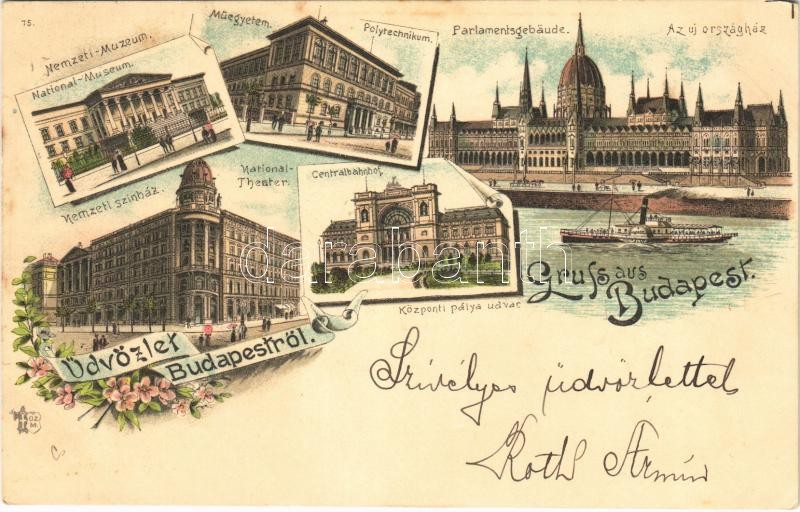 75.
Nemzeti-Muzeum.
National-Museum.
Müegyetem.
Polytechnikum.
Parlamentsgebäude.
Az uj országház
Nemzeti szinház.
National-
Theater.
Centralbahnhof.
Központi pálya udvar
Gruss aus
Budapest.
Üdvözlet
Budapestről.
darabanth
Szivélyes üdvözlettel
Roth Ármin